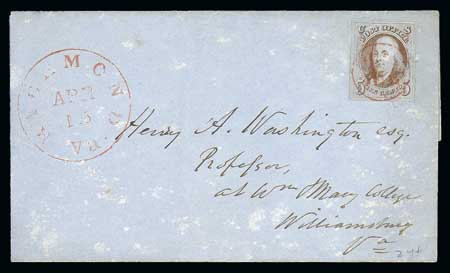 RICHMOND
APR
13
Va.
POST OFFICE
5 5
FIVE CENTS
Henry A. Washington esq.
Professor,
at Wm & Mary College
Williamsburg
Va